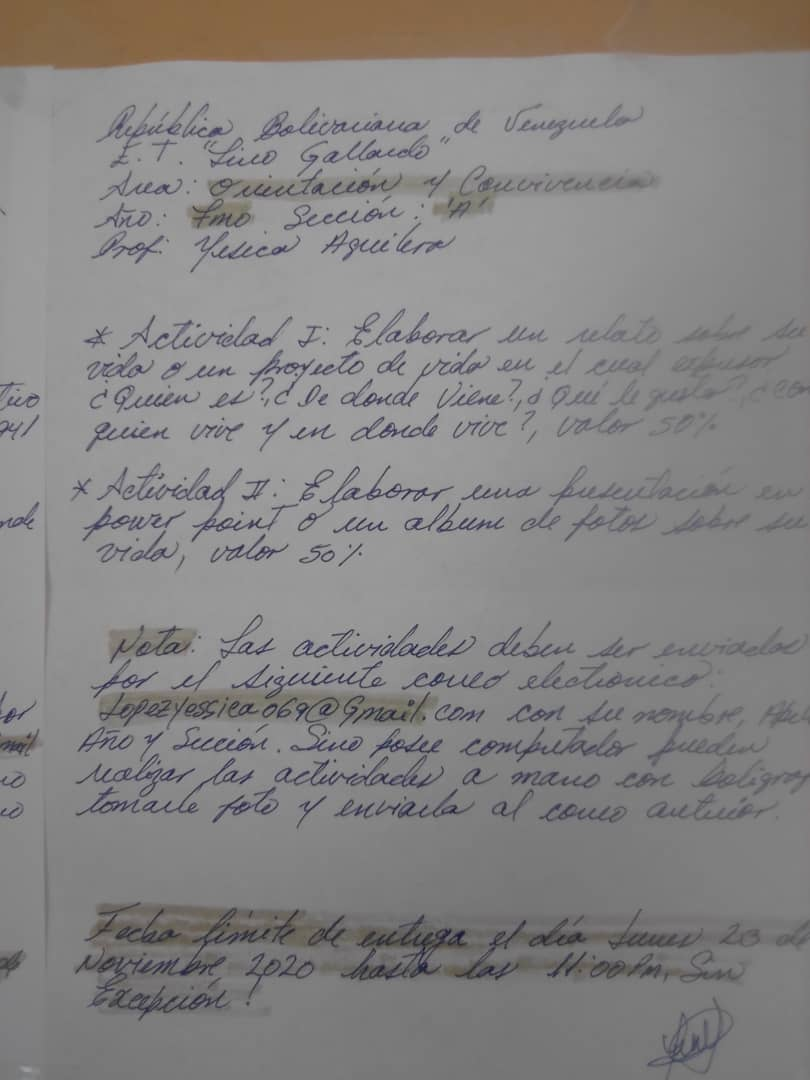 República Bolivariana de Venezuela
E.T. "Lino Gallardo"
Area: Orientación y Convivencia
Año: 1mo Sección: "A"
Prof: Yesica Aguilera
* Actividad I: Elaborar un relato sobre su
vida o un proyecto de vida en el cual
¿Quien es?, ¿De donde Viene?, ¿Qué le gusta?, ¿Con
quien vive y en donde vive?, valor 50%.
* Actividad II: Elaborar una presentación en
power point o un album de fotos sobre su
vida, valor 50%.
Nota: Las actividades deben ser enviadas
por el siguiente correo electronico:
Lopezyessica069@Gmail.com con su nombre,
Año y Sección. Sino posee computador pueden
realizar las actividades a mano con
tomarle foto y enviarla al correo anterior.
Fecha límite de entrega el día lunes 23 de
Noviembre 2020 hasta las 11:00Pm, Sin
Excepción!